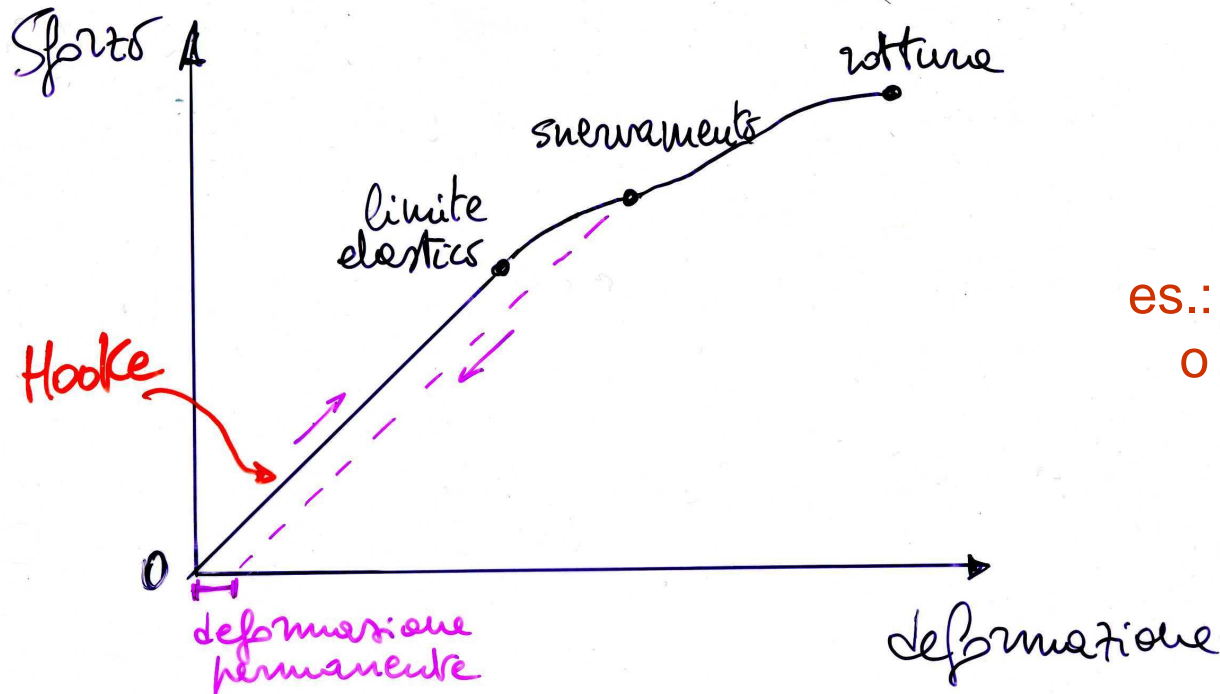 Sforzo
rottura
snervamento
limite
elastico
es.:
o
Hooke
0
deformazione
permanente
deformazione